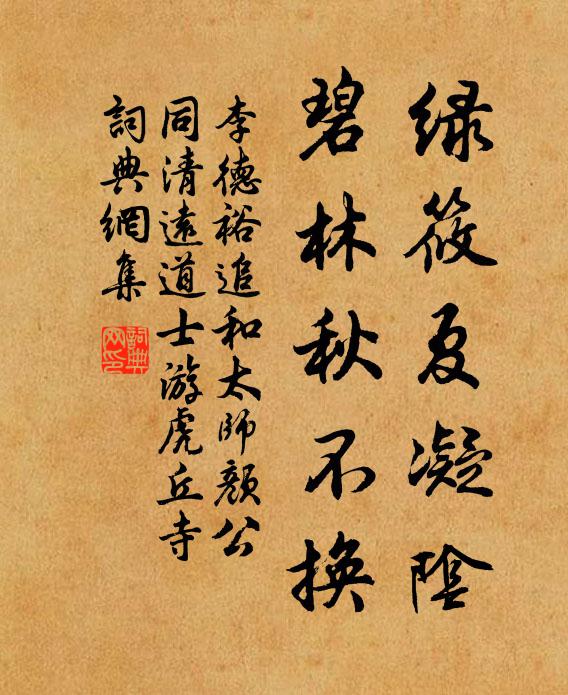 緑筱夏凝陰
碧林秋不換
李德裕追和太師顏公
同清遠道士游虎丘寺
詞典網集
詞典網印